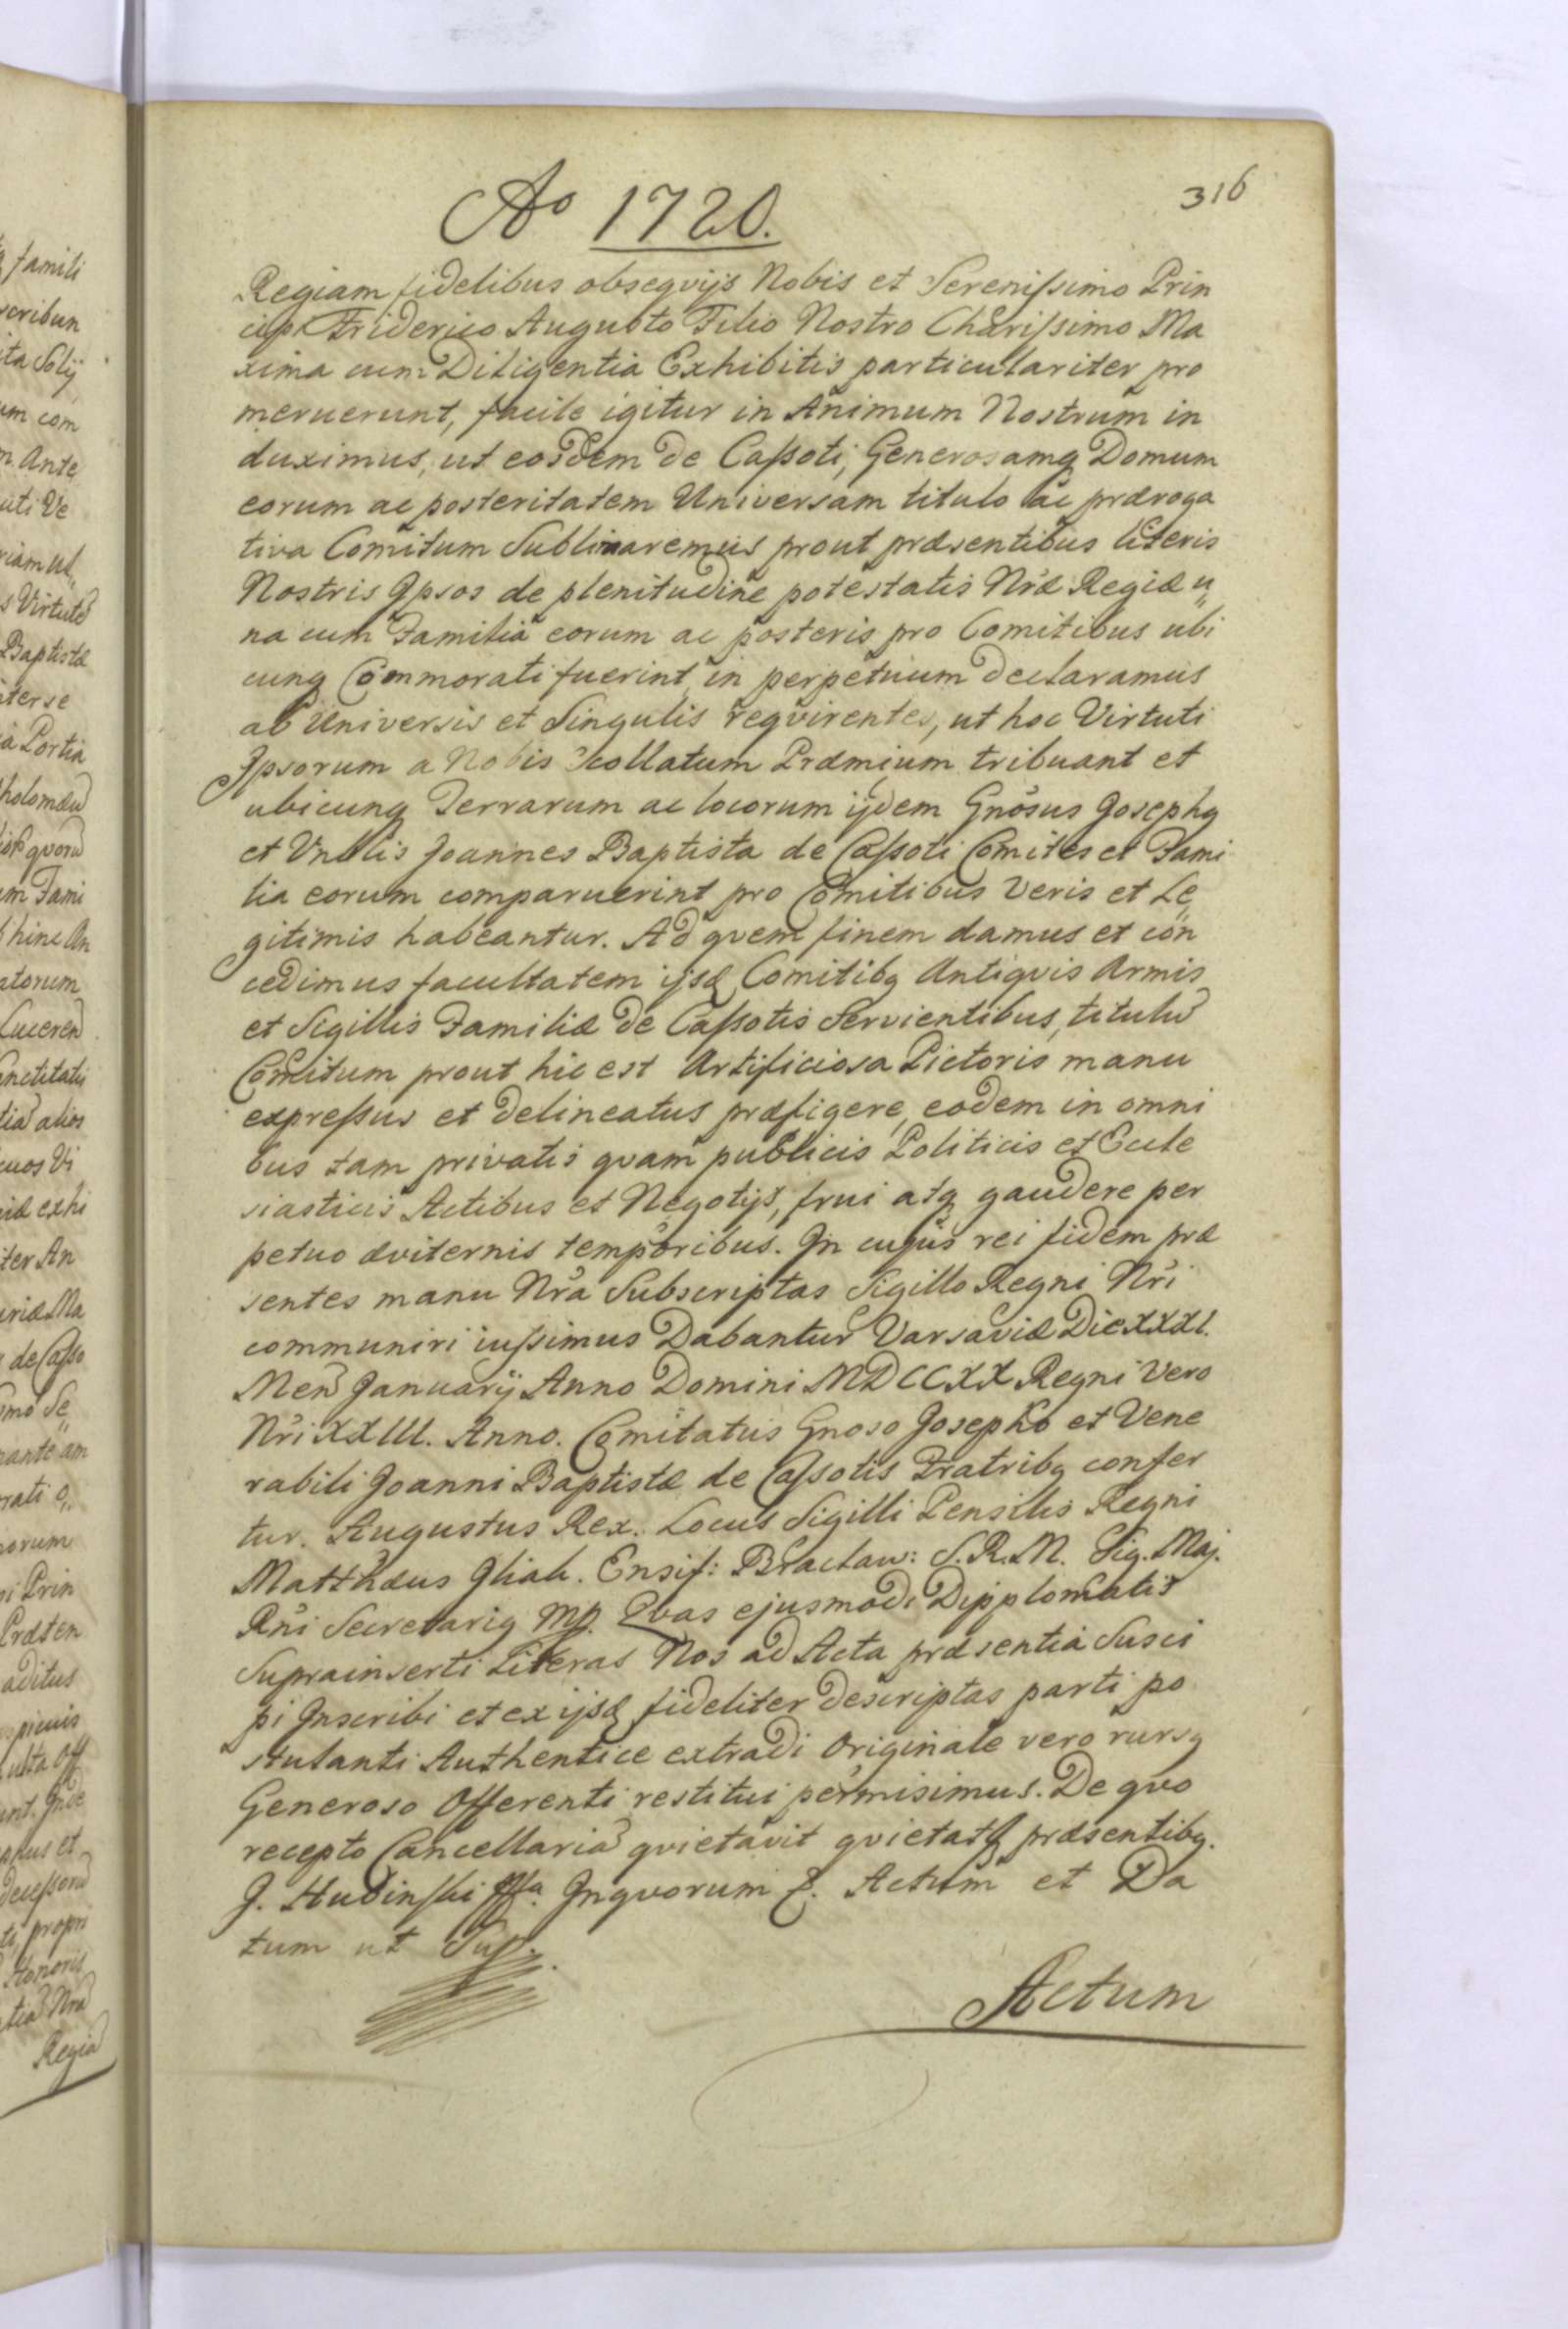 316
Ao 1720.
Regiam fidelibus obseqvijs Nobis et Serenißimo Prin
cipi Friderico Augusto Filio Nostro Charißimo Ma
xima cum Diligentia Exhibitis particulariter pro
meruerunt, facile igitur in Animum Nostrum in
duximus, ut eosdem de Caßoti, Generosamq Domum
eorum ac posteritatem Universam titulo ac præroga
tiva Comitum Sublimaremus prout præsentibus literis
Nostris Ipsos de plenitudine potestatis Nræ Regiæ u„
na cum Familia eorum ac posteris pro Comitibus ubi
cunq Commorati fuerint in perpetuum declaramus
ab Universis et Singulis reqvirentes, ut hoc Virtuti
Ipsorum a Nobis collatum Præmium tribuant et
ubicunq Terrarum ac locorum ijdem Gnosus Josephq
et Vnblis Joannes Baptista de Caßoti Comites et Fami
lia eorum comparuerint pro Comitibus Veris et Le„
gitimis habeantur. Ad qvem finem damus et con
cedimus facultatem ijsd Comitibq Antiqvis Armis
et Sigillis Familiæ de Caßotis Servientibus, titulu
Comitum prout hic est Artificiosa Pictoris manu
expreßus et delineatus præfigere, eodem in omni
bus tam privatis qvam publicis Politicis et Eccle
siasticis Actibus et Negotijs, frui atq gaudere per
petuo æviternis temporibus. In cujus rei fidem præ
sentes manu Nra Subscriptas Sigillo Regni Nri
communiri iußimus Dabantur Varsaviæ Die XXXI.
Men Januarij Anno Domini MDCCXX Regni Vero
Nri XXIII. Anno. Comitatus Gnoso Josepho et Vene
rabili Joanni Baptistæ de Caßotis Fratribq confer
tur. Augustus Rex. Locus Sigilli Pensilis Regni
Matthæus Gliah. Ensif: Braclaw: S. R. M. Sig. Maj.
Rni Secretariq Mp. Qvas ejusmodi Dipplomatis
Suprainserti Literas Nos ad Acta præsentia Susci
pi Inscribi et ex ijsd fideliter descriptas parti po
stulanti Authentice extradi Originale vero rursq
Generoso Offerenti restitui permisimus. De qvo
recepto Cancellaria qvietavit qvietatq præsentibq.
J. Hudinski Inqvorum Actum et Da
tum ut Sup.
Actum